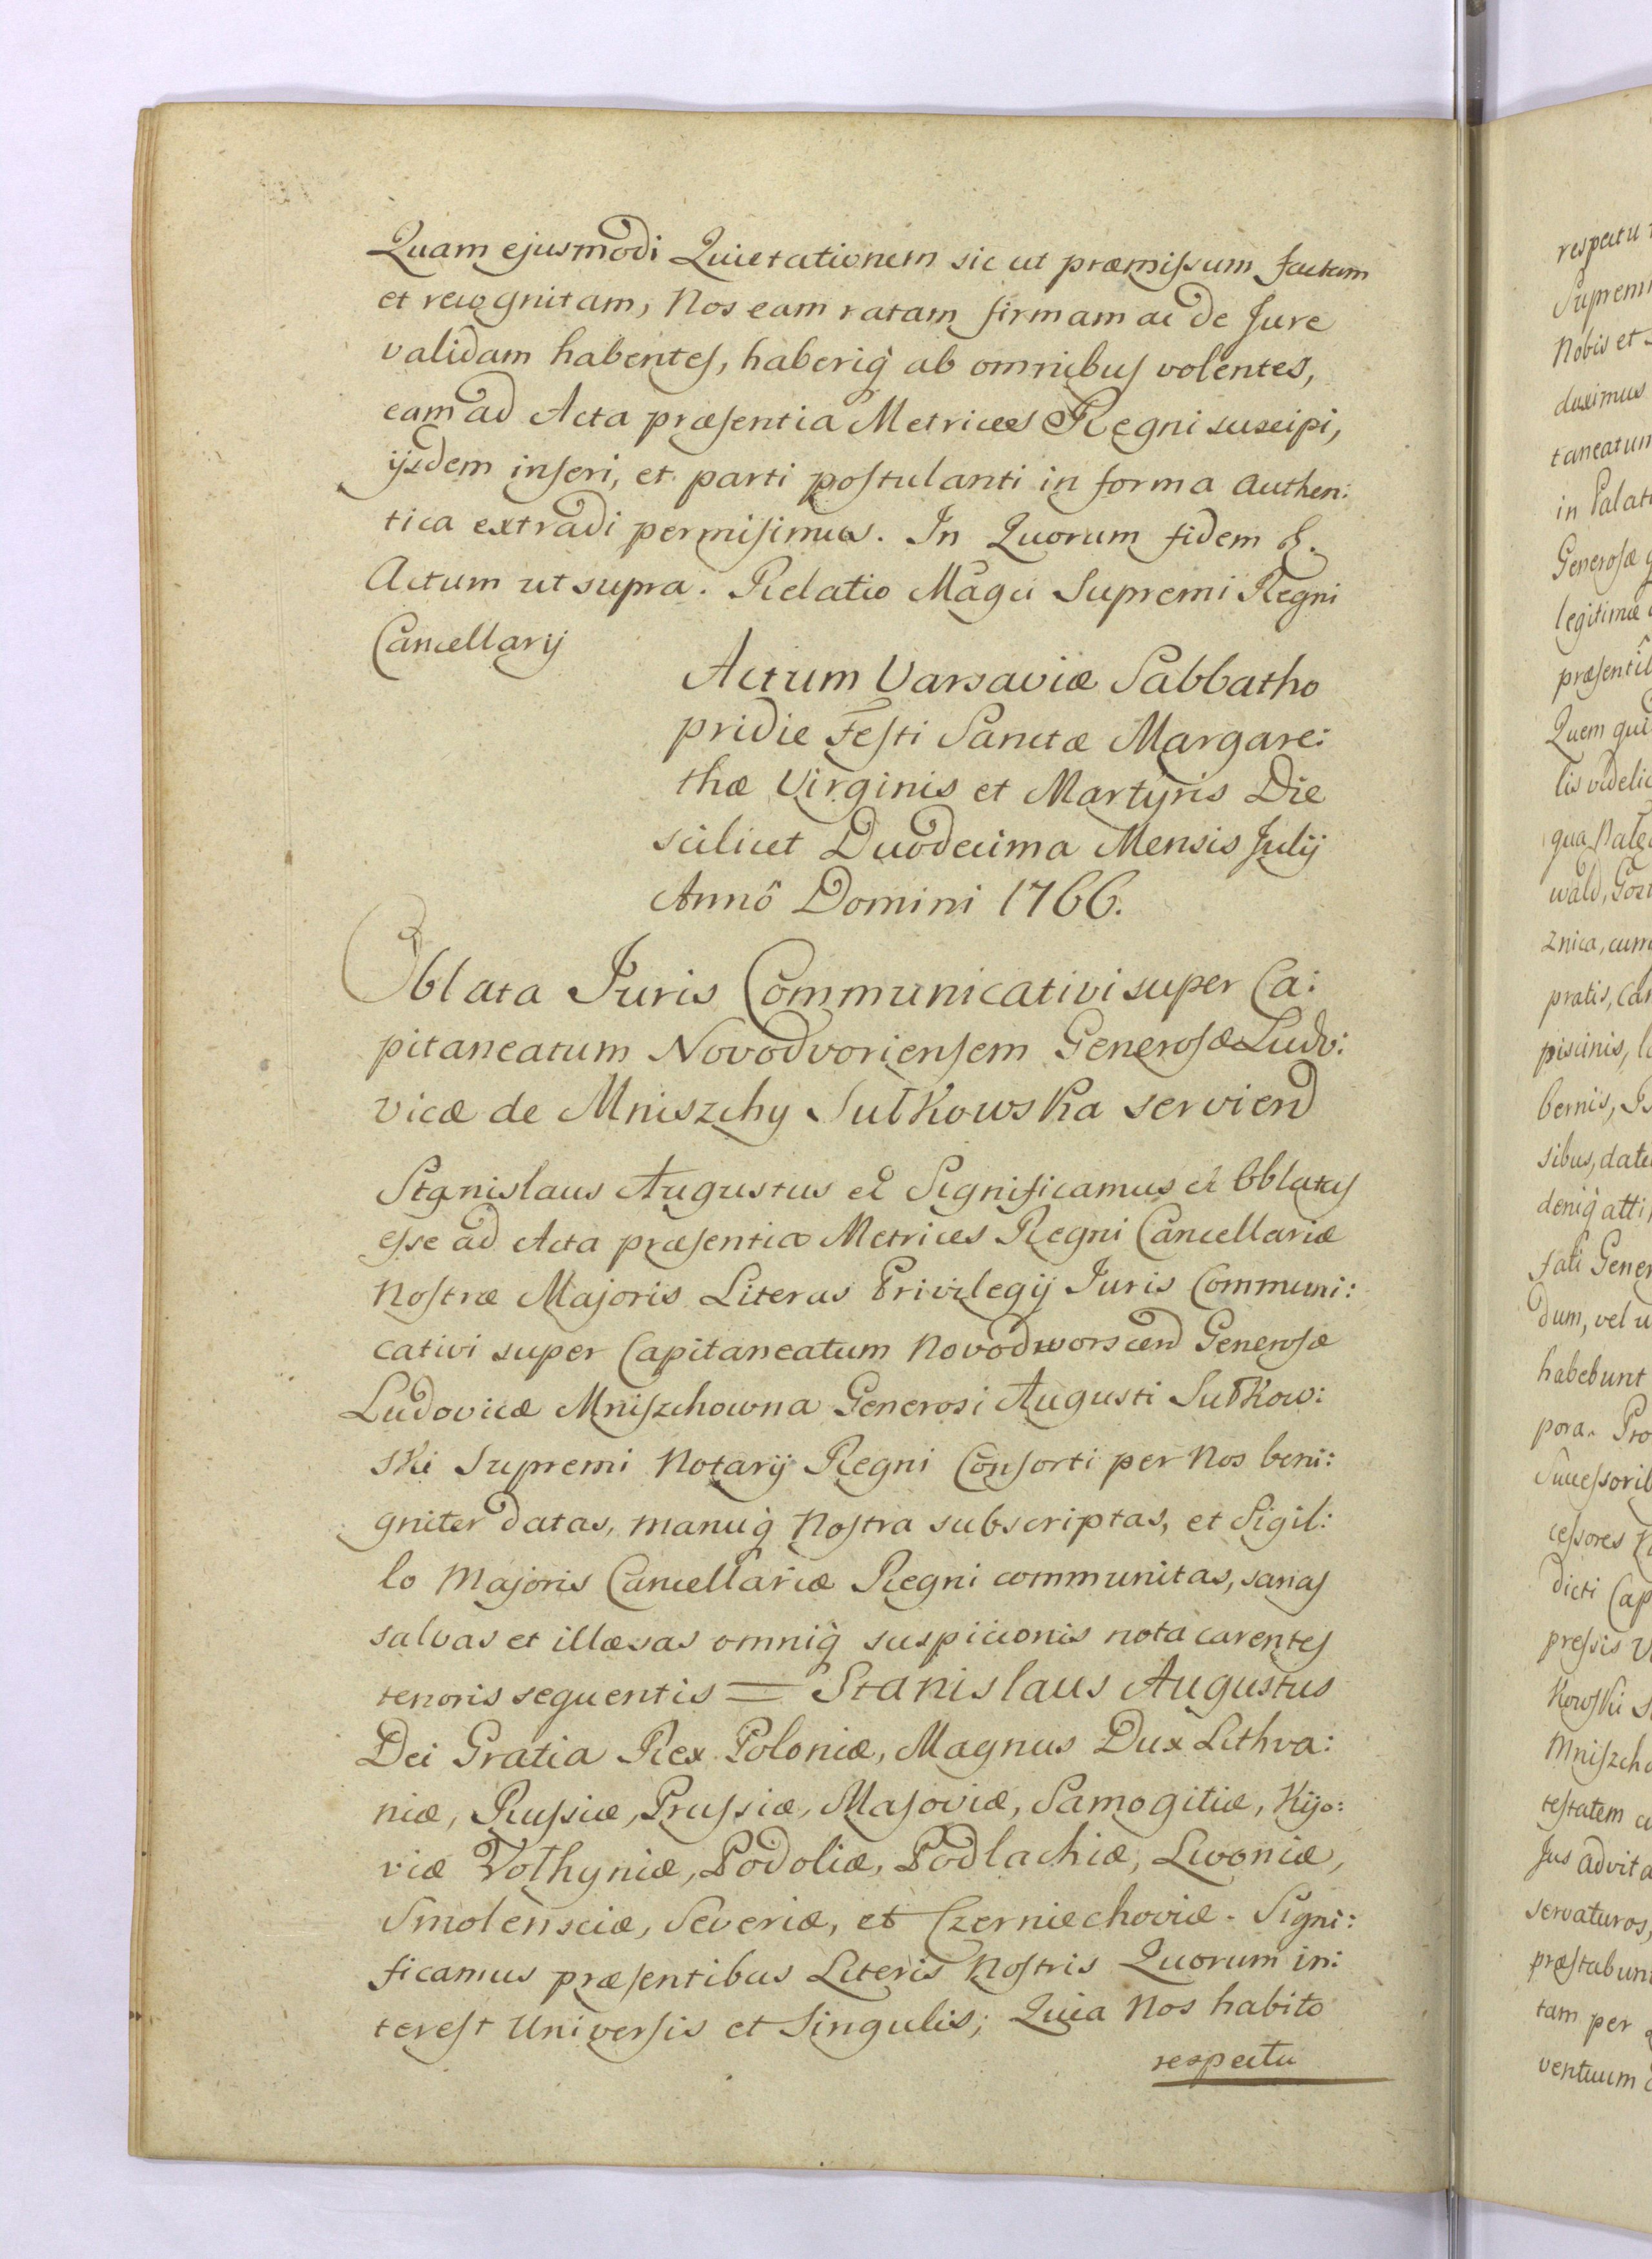 Quam ejusmodi Quietationem sic ut præmissum factam
et recognitam, Nos eam ratam firmam ac de Jure
validam habentes, haberiq́ ab omnibus volentes,
eam ad Acta præsentia Metrices Regni suscipi,
ijsdem inseri, et parti postulanti in forma Authen:
tica extradi permisimus. In Quorum fidem &.
Actum ut supra. Relatio Magci Supremi Regni
Cancellarij
Actum Varsaviæ Sabbatho
pridie Festi Sanctæ Margare:
thæ Virginis et Martyris Die
scilicet Duodecima Mensis Julij
Annô Domini 1766.
Oblata Juris Communicativi super Ca:
pitaneatum Novodvoriensem Generosæ Ludo:
vicæ de Mniszchy Sułkowska serviend
Stanislaus Augustus et Significamus et Oblatas
esse ad Acta præsentia Metrices Regni Cancellariæ
Nostræ Majoris Literas Privilegij Juris Communi:
cativi super Capitaneatum Novodworscen Generosæ
Ludovicæ Mniszchowna Generosi Augusti Sułkow:
ski Supremi Notarij Regni Consorti per Nos beni:
gniter datas, manuq́ Nostra subscriptas, et Sigil:
lo Majoris Cancellariæ Regni communitas, sanas
salvas et illæsas omniq́ suspicionis nota carentes
tenoris sequentis = Stanislaus Augustus
Dei Gratia Rex Poloniæ, Magnus Dux Lithva:
niæ, Russiæ, Prussiæ, Masoviæ, Samogitiæ, Kijo:
viæ Volhyniæ, Podoliæ, Podlachiæ, Livoniæ,
Smolensciæ, Severiæ, et Czerniechoviæ. Signi:
ficamus præsentibus Literis Nostris Quorum in:
terest Universis et Singulis; Quia Nos habito
respectu
respectu
Supremi
Nobis et
duximus
taneatum
in Palat
Generosæ
legitimæ
præsenti
Quem qui
lis videlic
qua
wald,
znica, cum
pratis,
piscinis,
bernis,
sibus,
deniq́ atti
fati Gener
dum, vel
habebunt
pora. Pro
Successorib
cessores
dicti Cap
pressis
kowski
Mniszcho
testatem
Jus advita
servaturos,
præstabunt
tam per
ventuum